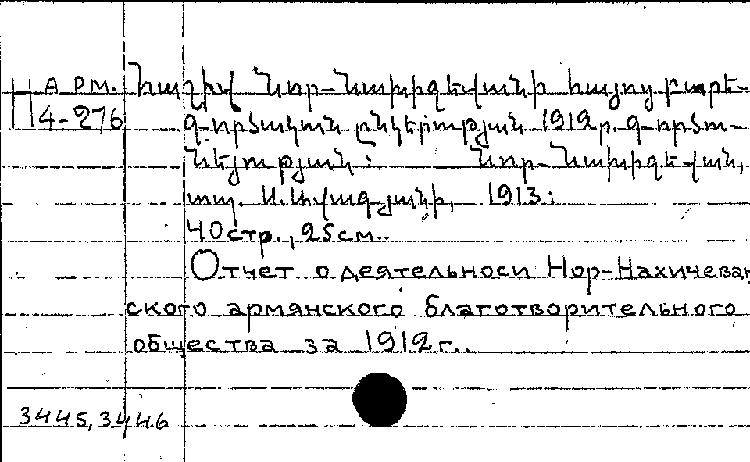 АРМ. Հաշիվ Նոր-Նախիջեվանի հայոց բարե-
П4-276 գործական ընկերության 1912 թ. գործու-
նեյության: Նոր-Նախիջեվան,
տպ. Ս. Ավագյանի, 1913:
40стр., 25см.
Отчет о деятельноси Нор-Нахичеван
ского армянского благотворительного
общества за 1912 г..
3445, 3446